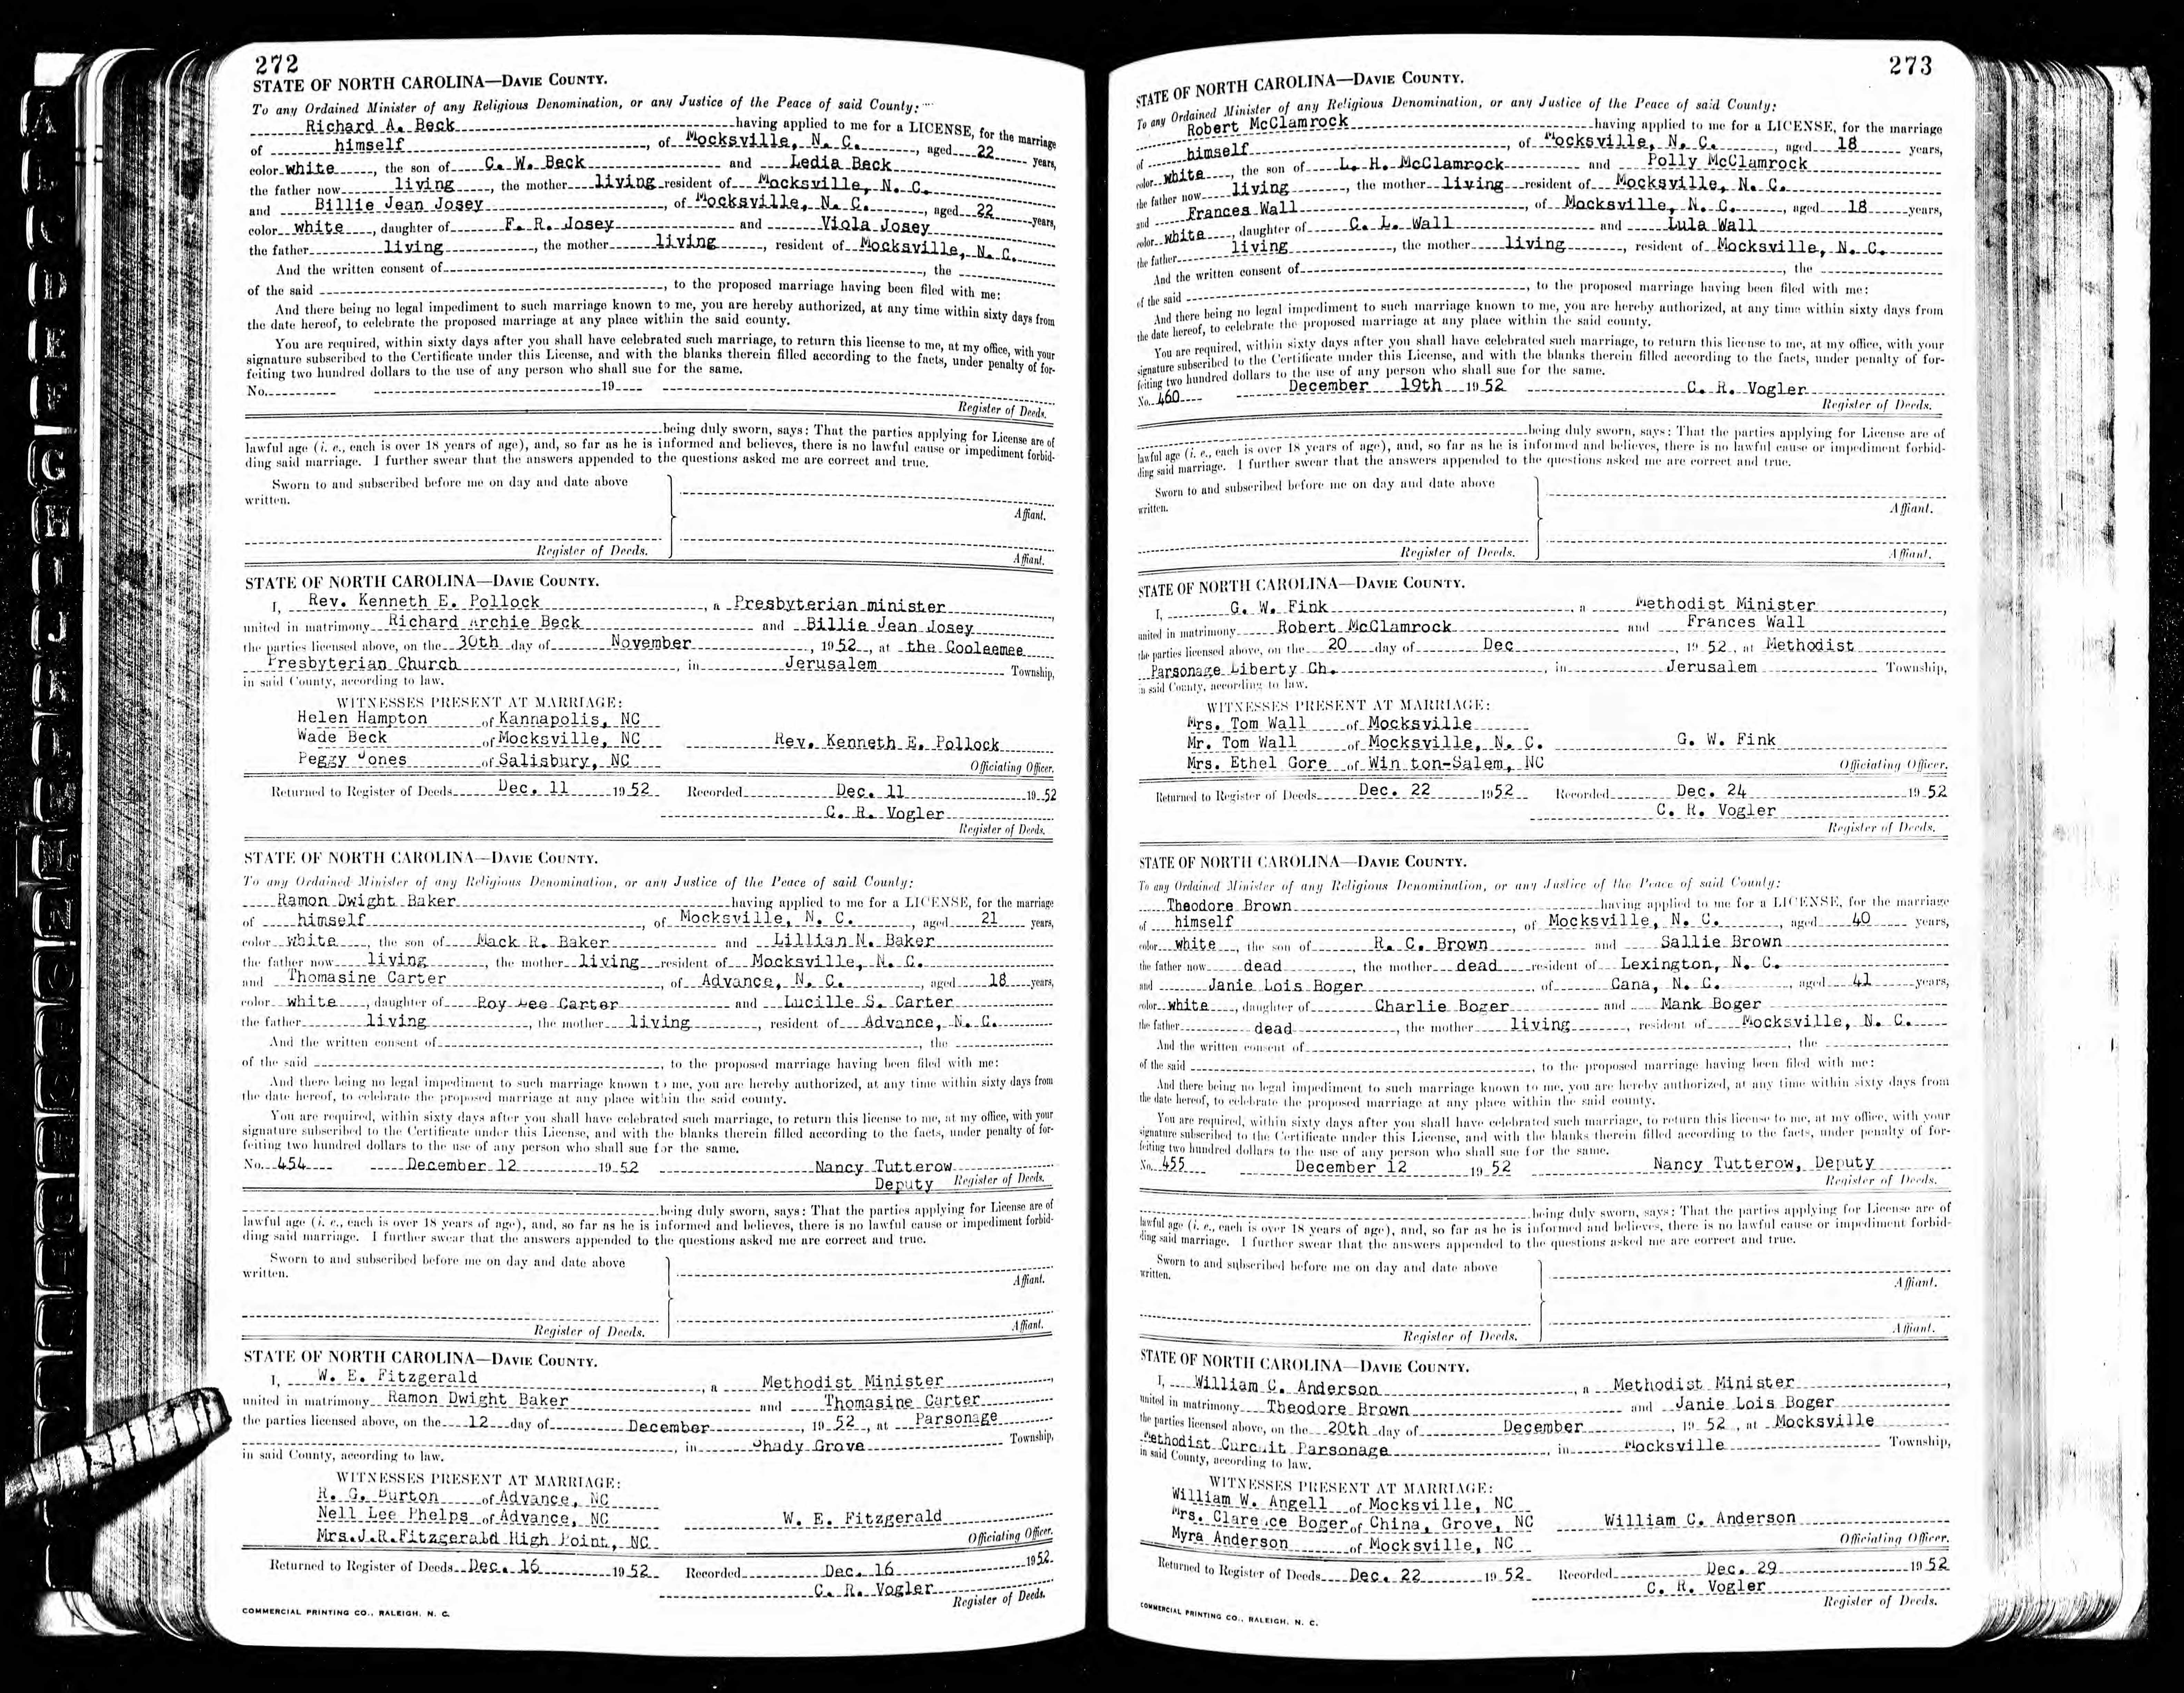 272
STATE OF NORTH CAROLINA—DAVIE COUNTY.
To any Ordained Minister of any Religious Denomination, or any Justice of the Peace of said County:
Richard A. Beck having applied to me for a LICENSE, for the marriage
of himself, of Mocksville, N. C., aged 22 years,
color white, the son of C. W. Beck and Ledia Beck
the father now living, the mother living resident of Mocksville, N. C.
and Billie Jean Josey, of Mocksville, N. C., aged 22 years,
color white, daughter of F. R. Josey and Viola Josey
the father living, the mother living, resident of Mocksville, N. C.
And the written consent of , the
of the said , to the proposed marriage having been filed with me:
And there being no legal impediment to such marriage known to me, you are hereby authorized, at any time within sixty days from
the date hereof, to celebrate the proposed marriage at any place within the said county.
You are required, within sixty days after you shall have celebrated such marriage, to return this license to me, at my office, with your
signature subscribed to the Certificate under this License, and with the blanks therein filled according to the facts, under penalty of for-
feiting two hundred dollars to the use of any person who shall sue for the same.
No. 19
Register of Deeds.
being duly sworn, says: That the parties applying for License are of
lawful age (i. e., each is over 18 years of age), and, so far as he is informed and believes, there is no lawful cause or impediment forbid-
ding said marriage. I further swear that the answers appended to the questions asked me are correct and true.
Sworn to and subscribed before me on day and date above
written.
Affiant.
Register of Deeds.
Affiant.
STATE OF NORTH CAROLINA—DAVIE COUNTY.
I, Rev. Kenneth E. Pollock, a Presbyterian minister
united in matrimony Richard Archie Beck and Billie Jean Josey
the parties licensed above, on the 30th day of November, 1952, at the Cooleemee
Presbyterian Church, in Jerusalem Township,
in said County, according to law.
WITNESSES PRESENT AT MARRIAGE:
Helen Hampton of Kannapolis, NC
Wade Beck of Mocksville, NC Rev. Kenneth E. Pollock
Peggy Jones of Salisbury, NC Officiating Officer.
Returned to Register of Deeds Dec. 11 1952 Recorded Dec. 11 1952
C. R. Vogler
Register of Deeds.
STATE OF NORTH CAROLINA—DAVIE COUNTY.
To any Ordained Minister of any Religious Denomination, or any Justice of the Peace of said County:
Ramon Dwight Baker having applied to me for a LICENSE, for the marriage
of himself, of Mocksville, N. C., aged 21 years,
color white, the son of Mack R. Baker and Lillian N. Baker
the father now living, the mother living resident of Mocksville, N. C.
and Thomasine Carter, of Advance, N. C., aged 18 years,
color white, daughter of Roy Lee Carter and Lucille S. Carter
the father living, the mother living, resident of Advance, N. C.
And the written consent of , the
of the said , to the proposed marriage having been filed with me:
And there being no legal impediment to such marriage known to me, you are hereby authorized, at any time within sixty days from
the date hereof, to celebrate the proposed marriage at any place within the said county.
You are required, within sixty days after you shall have celebrated such marriage, to return this license to me, at my office, with your
signature subscribed to the Certificate under this License, and with the blanks therein filled according to the facts, under penalty of for-
feiting two hundred dollars to the use of any person who shall sue for the same.
No. 454 December 12 1952 Nancy Tutterow
Deputy Register of Deeds.
being duly sworn, says: That the parties applying for License are of
lawful age (i. e., each is over 18 years of age), and, so far as he is informed and believes, there is no lawful cause or impediment forbid-
ding said marriage. I further swear that the answers appended to the questions asked me are correct and true.
Sworn to and subscribed before me on day and date above
written.
Affiant.
Register of Deeds.
Affiant.
STATE OF NORTH CAROLINA—DAVIE COUNTY.
I, W. E. Fitzgerald, a Methodist Minister
united in matrimony Ramon Dwight Baker and Thomasine Carter
the parties licensed above, on the 12 day of December, 1952, at Parsonage
, in Shady Grove Township,
in said County, according to law.
WITNESSES PRESENT AT MARRIAGE:
R. G. Burton of Advance, NC
Nell Lee Phelps of Advance, NC W. E. Fitzgerald
Mrs.J.R.Fitzgerald High Point, NC Officiating Officer.
Returned to Register of Deeds Dec. 16 1952 Recorded Dec. 16 1952
C. R. Vogler
Register of Deeds.
COMMERCIAL PRINTING CO., RALEIGH, N. C.
273
STATE OF NORTH CAROLINA—DAVIE COUNTY.
To any Ordained Minister of any Religious Denomination, or any Justice of the Peace of said County:
Robert McClamrock having applied to me for a LICENSE, for the marriage
of himself, of Mocksville, N. C., aged 18 years,
color white, the son of L. H. McClamrock and Polly McClamrock
the father now living, the mother living resident of Mocksville, N. C.
and Frances Wall, of Mocksville, N. C., aged 18 years,
color white, daughter of C. L. Wall and Lula Wall
the father living, the mother living, resident of Mocksville, N. C.
And the written consent of , the
of the said , to the proposed marriage having been filed with me:
And there being no legal impediment to such marriage known to me, you are hereby authorized, at any time within sixty days from
the date hereof, to celebrate the proposed marriage at any place within the said county.
You are required, within sixty days after you shall have celebrated such marriage, to return this license to me, at my office, with your
signature subscribed to the Certificate under this License, and with the blanks therein filled according to the facts, under penalty of for-
feiting two hundred dollars to the use of any person who shall sue for the same.
No. 460 December 19th 1952 C. R. Vogler
Register of Deeds.
being duly sworn, says: That the parties applying for License are of
lawful age (i. e., each is over 18 years of age), and, so far as he is informed and believes, there is no lawful cause or impediment forbid-
ding said marriage. I further swear that the answers appended to the questions asked me are correct and true.
Sworn to and subscribed before me on day and date above
written.
Affiant.
Register of Deeds.
Affiant.
STATE OF NORTH CAROLINA—DAVIE COUNTY.
I, G. W. Fink, a Methodist Minister,
united in matrimony Robert McClamrock and Frances Wall
the parties licensed above, on the 20 day of Dec, 1952, at Methodist
Parsonage Liberty Ch., in Jerusalem Township,
in said County, according to law.
WITNESSES PRESENT AT MARRIAGE:
Mrs. Tom Wall of Mocksville
Mr. Tom Wall of Mocksville, N. C. G. W. Fink
Mrs. Ethel Gore of Win ton-Salem, NC Officiating Officer.
Returned to Register of Deeds Dec. 22 1952 Recorded Dec. 24 1952
C. R. Vogler
Register of Deeds.
STATE OF NORTH CAROLINA—DAVIE COUNTY.
To any Ordained Minister of any Religious Denomination, or any Justice of the Peace of said County:
Theodore Brown having applied to me for a LICENSE, for the marriage
of himself of Mocksville, N. C., aged 40 years,
color white, the son of R. C. Brown and Sallie Brown
the father now dead, the mother dead resident of Lexington, N. C.
and Janie Lois Boger, of Cana, N. C., aged 41 years,
color white, daughter of Charlie Boger and Mank Boger
the father dead, the mother living, resident of Mocksville, N. C.
And the written consent of , the
of the said , to the proposed marriage having been filed with me:
And there being no legal impediment to such marriage known to me, you are hereby authorized, at any time within sixty days from
the date hereof, to celebrate the proposed marriage at any place within the said county.
You are required, within sixty days after you shall have celebrated such marriage, to return this license to me, at my office, with your
signature subscribed to the Certificate under this License, and with the blanks therein filled according to the facts, under penalty of for-
feiting two hundred dollars to the use of any person who shall sue for the same.
No. 455 December 12 1952 Nancy Tutterow, Deputy
Register of Deeds.
being duly sworn, says: That the parties applying for License are of
lawful age (i. e., each is over 18 years of age), and, so far as he is informed and believes, there is no lawful cause or impediment forbid-
ding said marriage. I further swear that the answers appended to the questions asked me are correct and true.
Sworn to and subscribed before me on day and date above
written.
Affiant.
Register of Deeds.
Affiant.
STATE OF NORTH CAROLINA—DAVIE COUNTY.
I, William C. Anderson, a Methodist Minister,
united in matrimony Theodore Brown and Janie Lois Boger
the parties licensed above, on the 20th day of December, 1952, at Mocksville
Methodist Curcuit Parsonage, in Mocksville Township,
in said County, according to law.
WITNESSES PRESENT AT MARRIAGE:
William W. Angell of Mocksville, NC
Mrs. Clarence Boger of China, Grove, NC William C. Anderson
Myra Anderson of Mocksville, NC Officiating Officer.
Returned to Register of Deeds Dec. 22 1952 Recorded Dec. 29 1952
C. R. Vogler
Register of Deeds.
COMMERCIAL PRINTING CO., RALEIGH, N. C.